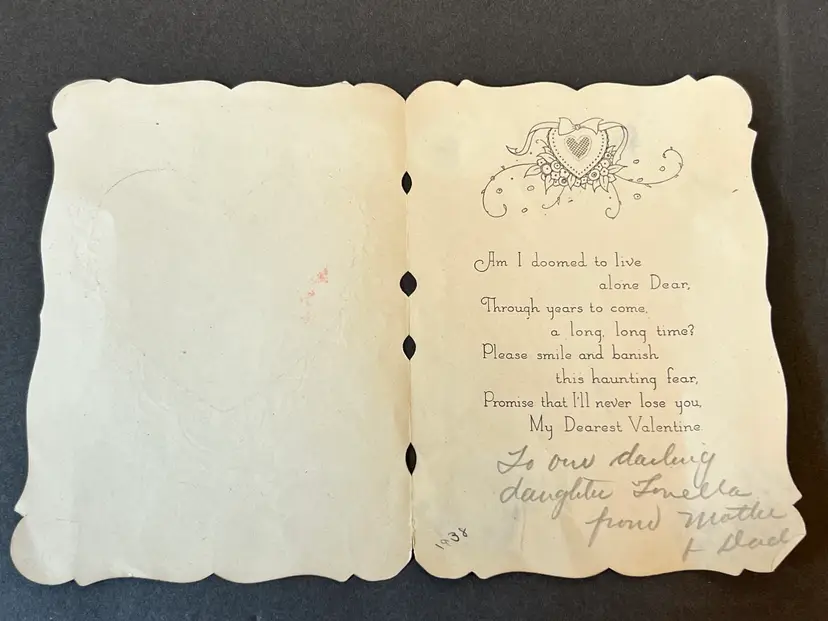 Am I doomed to live
alone Dear,
Through years to come,
a long, long time?
Please smile and banish
this haunting fear,
Promise that I'll never lose you,
My Dearest Valentine
To our darling
daughter Lonella
from Mother
+ Dad
1938